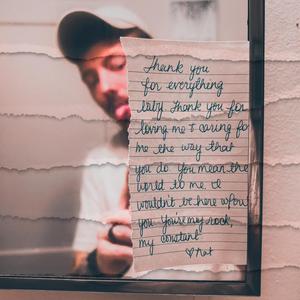 Thank you
for everything
baby. Thank you for
loving me & caring for
me the way that
you do. You mean the
world to me. I
wouldn't be here w/out
you. You're my rock,
my constant
♡ Nat